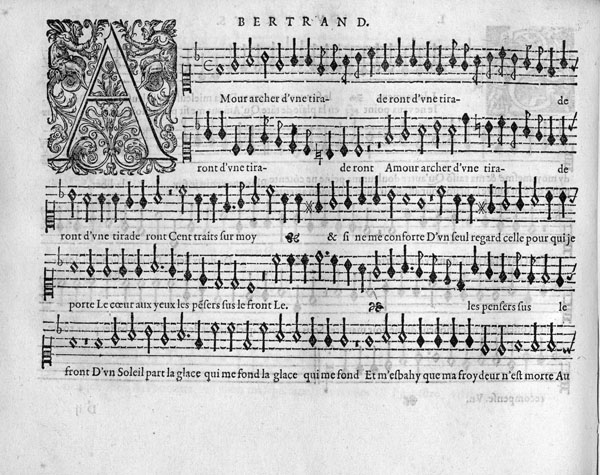 BERTRAND.
AMour archer d'vne tira- de ront d'vne tira- de
ront d'vne tira- de ront Amour archer d'vne tira- de
ront d'vne tirade ront Cent traits sur moy & si ne me conforte D'vn seul regard celle pour qui je
porte Le cœur aux yeux les pẽsers sus le front Le. les pensers sus le
front D'vn Soleil part la glace qui me fond la glace qui me fond Et m'esbahy que ma froydeur n'est morte Au
D ij recompense. Vn.